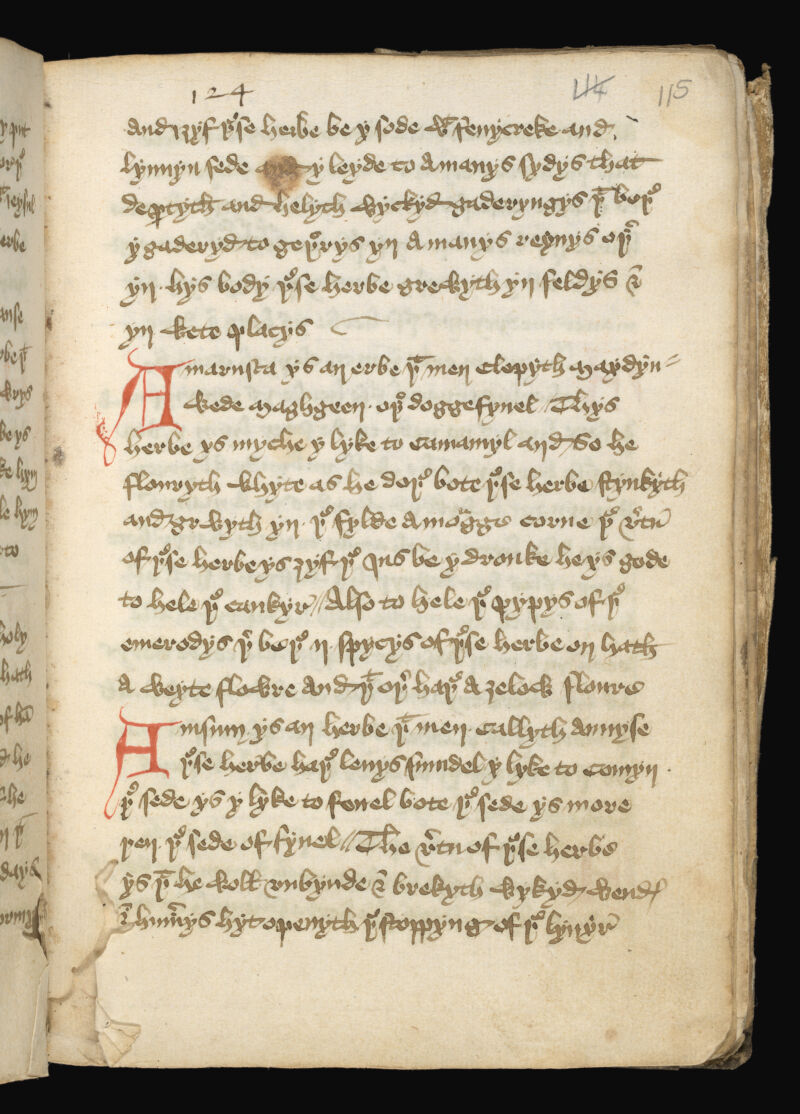 124 114 115
and ȝyf þͦse herbe be y sode wͭ fenycreke and
lynnyn sede and y leyde to A manys sydys that
deꝑtyth and helyth wyckyd gaderyngys þͭ beþͦ
y gaderyd to geþͦrys yn A manys reynys oþͬ
yn hys body þͦse herbe grewyth yn feldys &
yn wete placys
Amarusca ys an erbe þͭ men clepyth maydyn=
wede maghgeen oþͬ doggefynel // Thys
herbe ys myche y lyke to camamyl and so he
flouryth whyte as he doþͦ bote þͦse herbe stynkyth
and grwyth yn þͦ fylde A monggͦ corne þͦ v̾tu
of þͦse herbe ys ȝyf þͦ jus be y dronke he ys gode
to hele þͦ cankyr // Also to hele þͦ pypys of þͦ
emerodys þͬ beþͦ ij spycys of þͦse herbe on hath
A weyte flowre and þͭ oþͬ haþͦ A ȝelow floure
Anisum ys an herbe þͭ men callyth annyse
þͦse herbe haþͦ levys sumdel y lyke to comyn
þͦ sede ys y lyke to fenel bote þͦ sede ys more
þen þͦ sede of fynel // The v̾tu of þͦse herbe
ys þͭ he woll unbynde & brekyth wykyd wend
& humͬys hyt openyth þͦ stoppyng of þͦ lyuyr